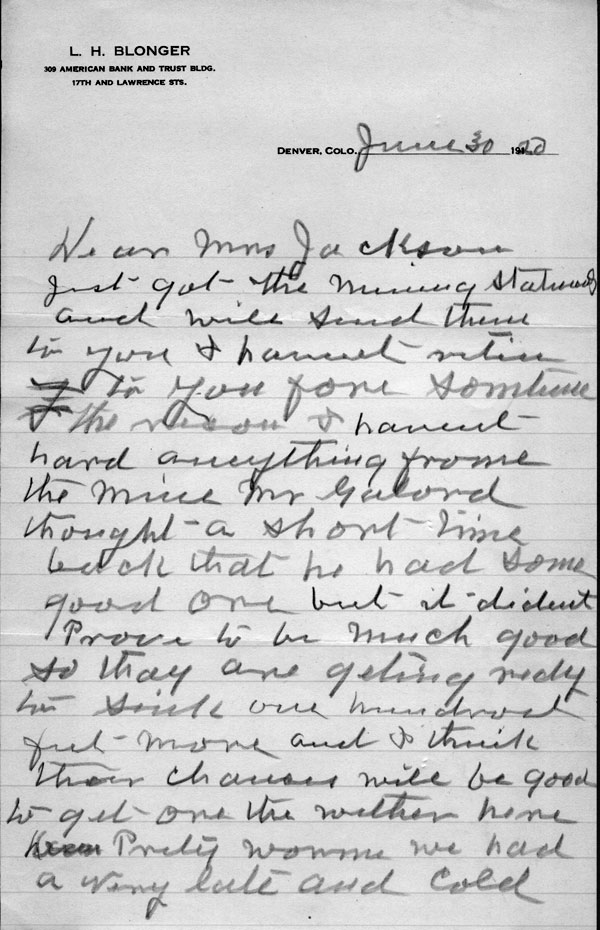 L. H. BLONGER
309 AMERICAN BANK AND TRUST BLDG.
17TH AND LAWRENCE STS.
DENVER, COLO. June 30 1920
Dear Mrs Jackson
Just got the mining
and will send them
to you I havent
to you fore somtime
& the reson I havent
hard anything frome
the mine Mr Galord
thought a short time
back that he had some
good ore but it dident
Prove to be much good
so thay are geting redy
to sink one hundred
fut more and I think
thair chances will be good
to get ore the wether here
Prety worme we had
a very late and cold